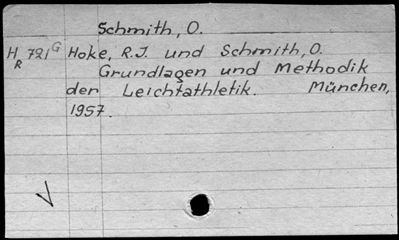 Schmith, O.
H 721 G Hoke, R.J. und Schmith, O.
R Grundlagen und Methodik
der Leichtathletik. München,
1957.